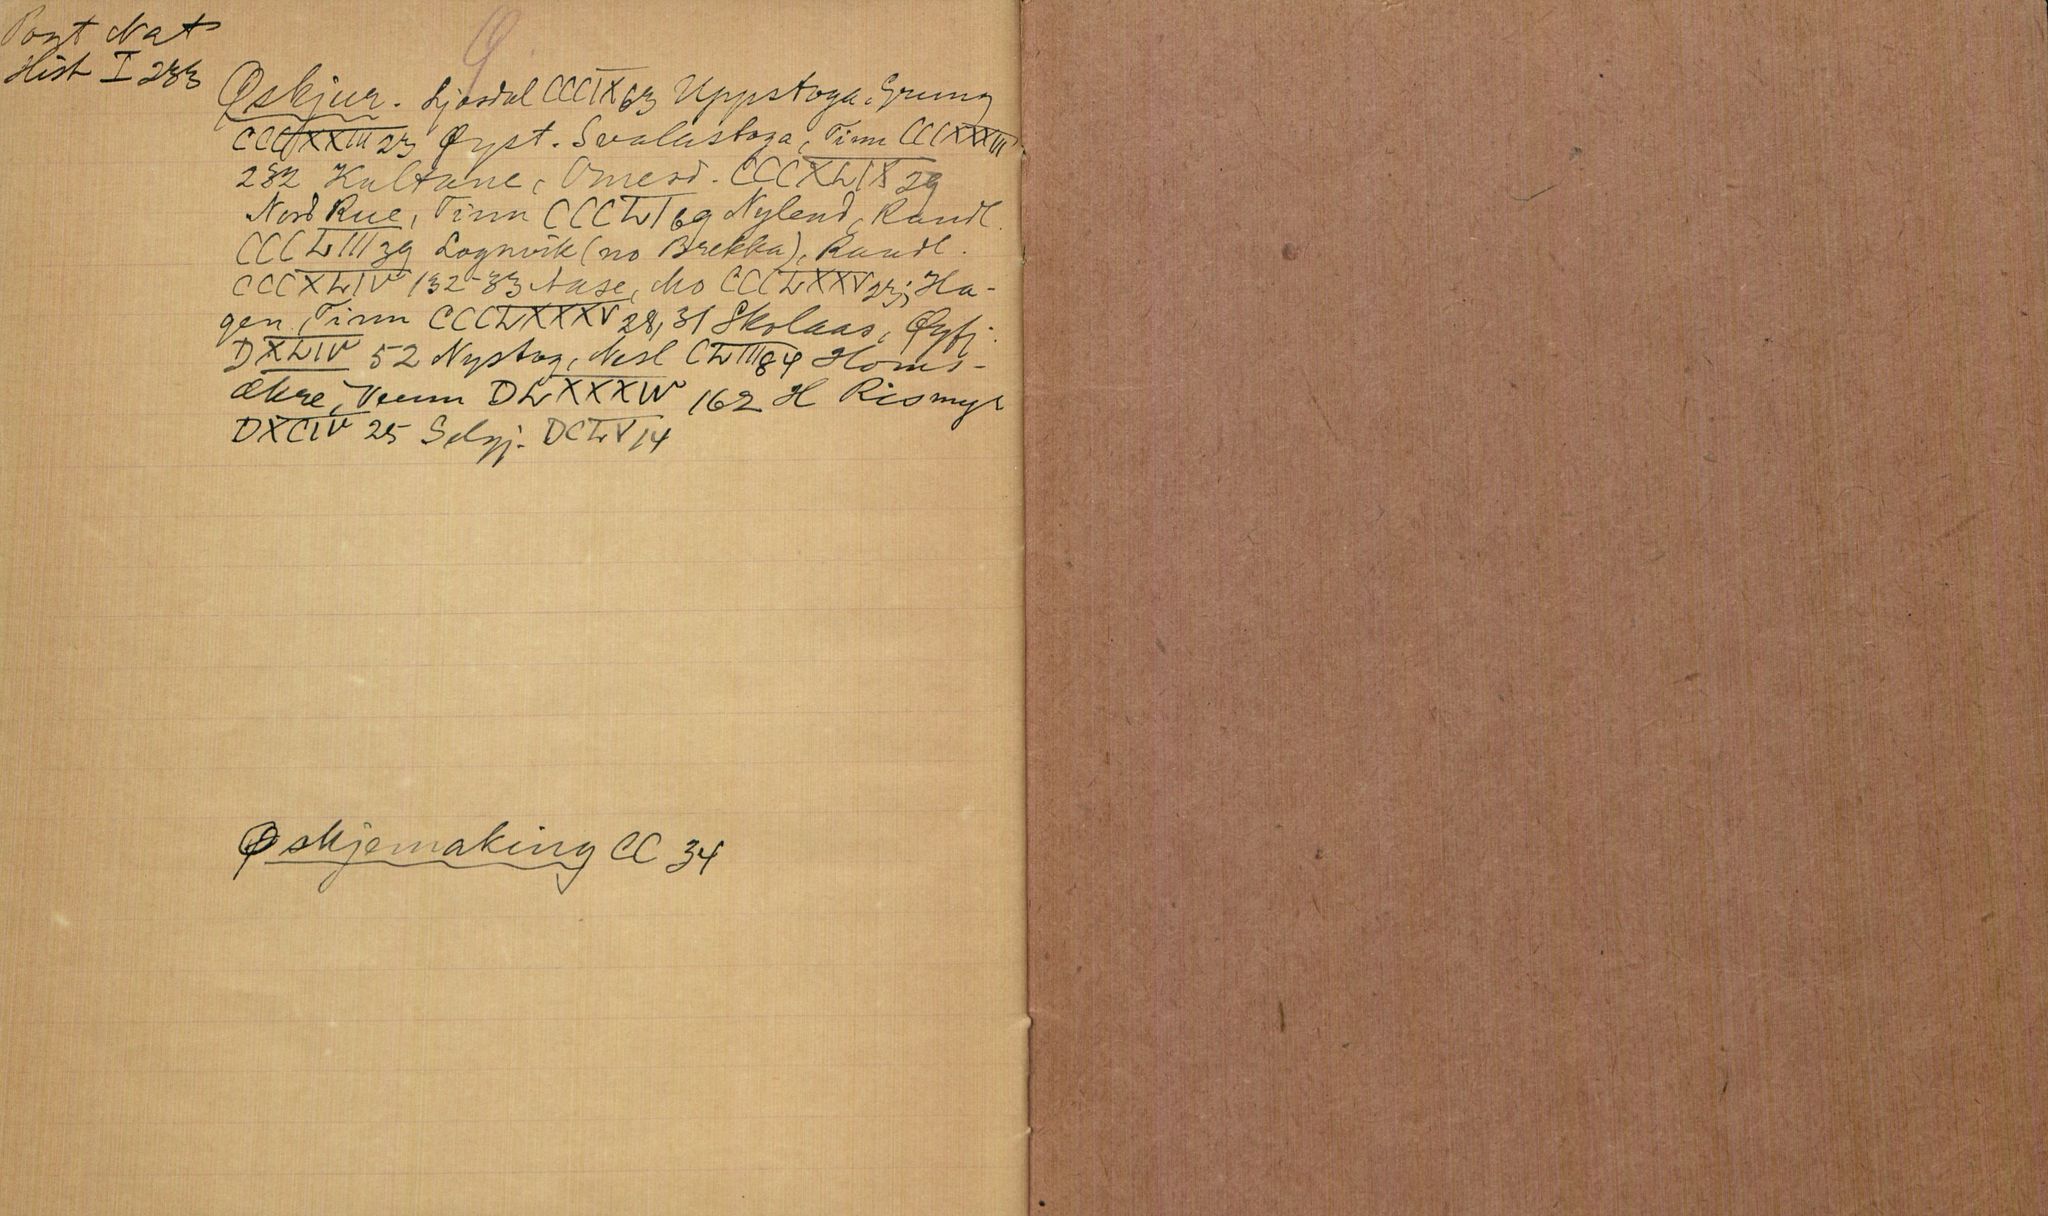 Pont Nat
Hist I 233
Ø.
Øskjur. Ljosdal CCCIX 63 Uppstoga, Grung
CCCXXIII 23 Øyst. Svalastoga, Tinn CCCXXXIII
282 Kultane, Omesd. CCCXLIX 29
Nord Rue, Tinn CCCLI 69 Nyland, Raudl.
CCCLIII 39 Lognvik (no Brekka), Raudl.
CCCXLIV 132-33 Aase, Mo CCCLXXV 23; Ha-
gen, Tinn CCCLXXXV 28, 31 Skolaas, Øyfj.
DXLIV 52 Nystog, Nesl CLIII 84 Homs-
økre, Veum DLXXXIV 162 H Rismyr
DXCIV 25 Selgj. DCLV 14
Øskjemaking CC 34